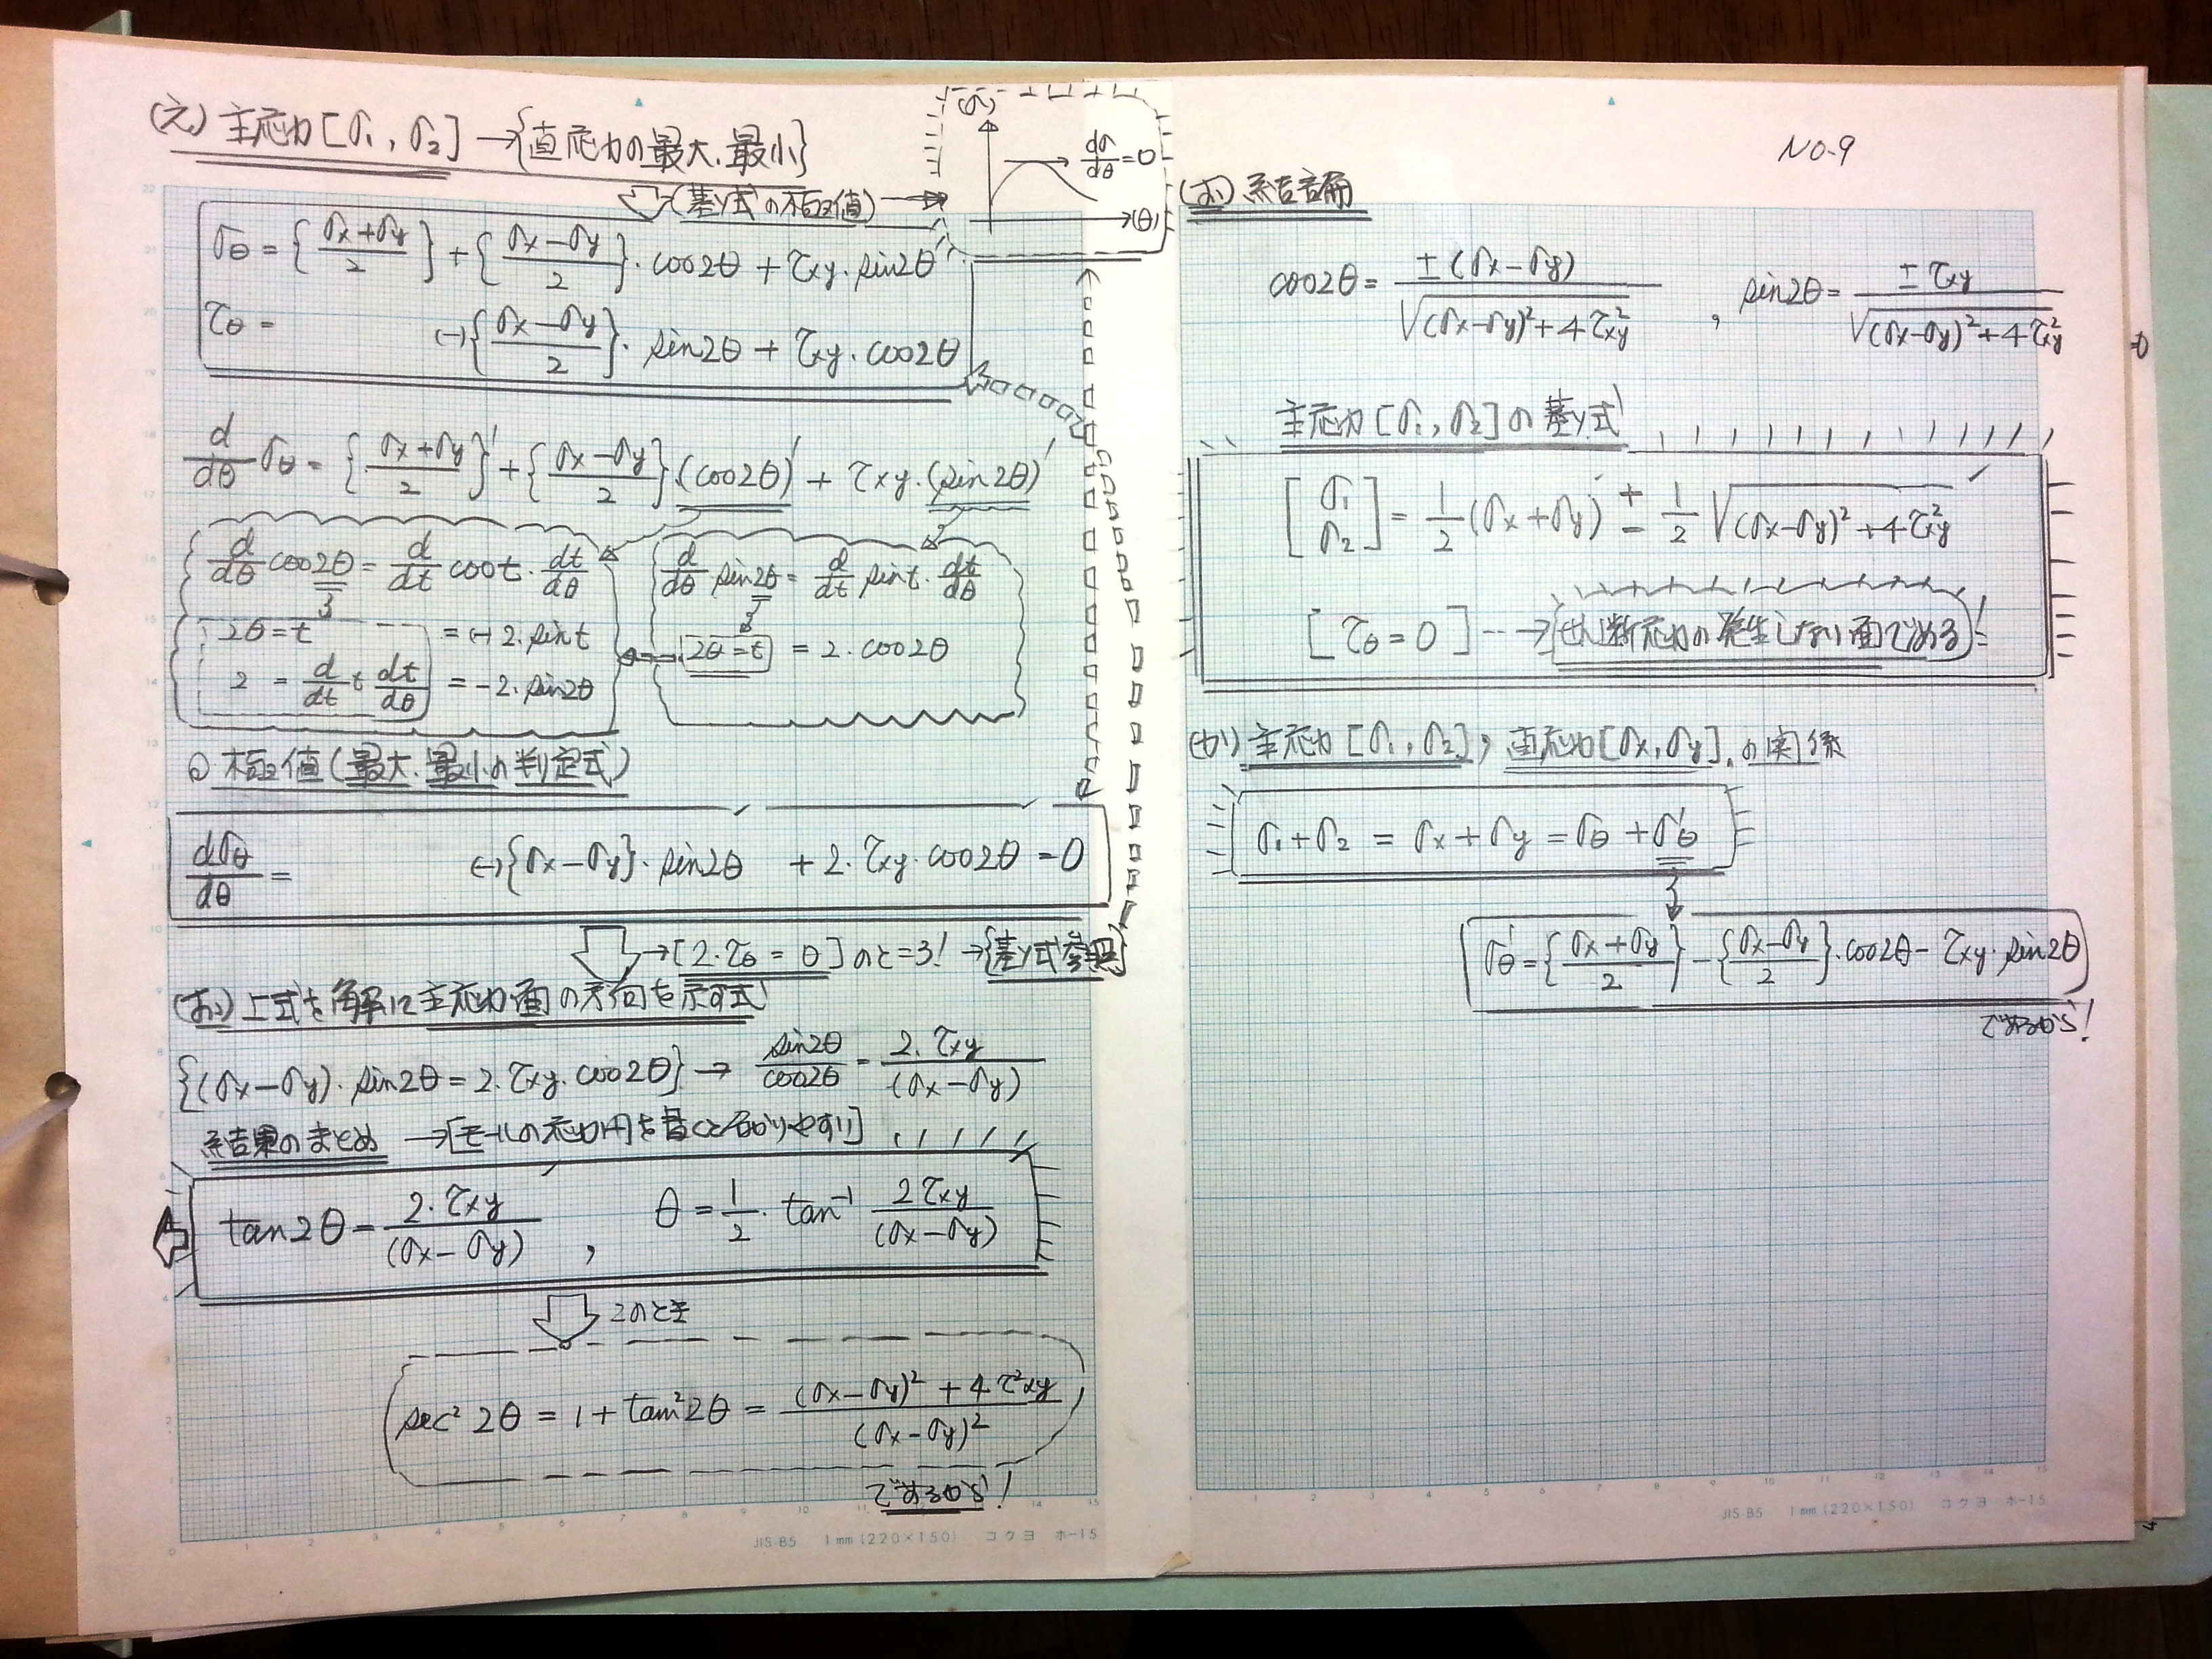 (え) 主応力[σ₁, σ₂] →{直応力の最大、最小}
(基本式の極値)
(σ)
dσ/dθ = 0
(θ)
σθ = {(σx+σy)/2} + {(σx−σy)/2}・cos2θ + τxy・sin2θ
τθ = (−){(σx−σy)/2}・sin2θ + τxy・cos2θ
d/dθ σθ = {(σx+σy)/2}' + {(σx−σy)/2}・(cos2θ)' + τxy・(sin2θ)'
d/dθ cos2θ = d/dt cost・dt/dθ
2θ=t
= (−)2・sint
2 = d/dt t dt/dθ
= −2・sin2θ
d/dθ・sin2θ = d/dt sint・dt/dθ
2θ=t
= 2・cos2θ
極値(最大、最小の判定式)
dσθ/dθ = (−){σx−σy}・sin2θ + 2・τxy・cos2θ = 0
→[2・τθ = 0]のとき! →{基本式参照}
(お) 上式を解いて主応力面の方向を示す式
{(σx−σy)・sin2θ = 2・τxy・cos2θ} → sin2θ/cos2θ = 2・τxy/(σx−σy)
結果のまとめ →[モールの応力円を書くと分かりやすい]
tan2θ = 2・τxy/(σx−σy) , θ = 1/2・tan⁻¹ 2τxy/(σx−σy)
このとき
sec² 2θ = 1 + tan²2θ = ((σx−σy)² + 4τ²xy)/(σx−σy)²
であるから!
NO-9
(お) 結論
cos2θ = ±(σx−σy)/√((σx−σy)²+4τxy²) , sin2θ = ±τxy/√((σx−σy)²+4τxy²)
主応力[σ₁, σ₂]の基本式
[σ₁ σ₂] = 1/2(σx+σy) ± 1/2√((σx−σy)²+4τxy²)
[τθ=0] --→ せん断応力の発生しない面である!
(か) 主応力[σ₁, σ₂], 直応力[σx, σy]の関係
σ₁+σ₂ = σx+σy = σθ+σ'θ
σ'θ = {(σx+σy)/2} − {(σx−σy)/2}・cos2θ − τxy・sin2θ
であるから!
JIS-B5 1mm(220×150) コクヨ ホ-15
JIS-B5 1mm(220×150) コクヨ ホ-15